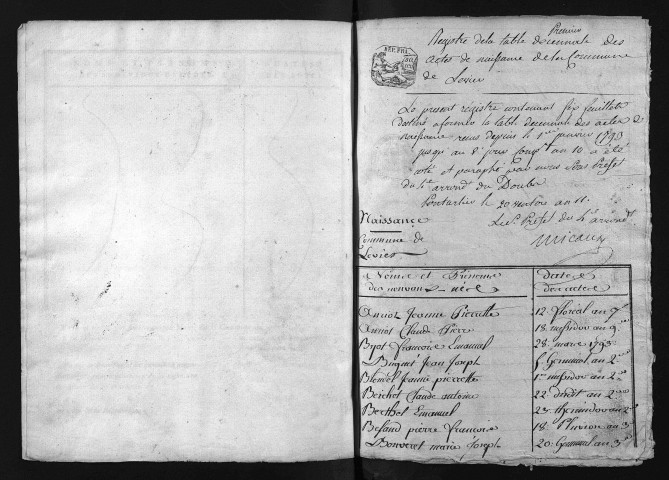 Premier
Registre de la table decennale des
actes de naissance de la Commune
de Levier
REP. FRA.
Le present registre contenant six feuillets
destiné a former la table decennale des actes de
naissance reçus depuis le 1er janvier 1793
jusqu'au 8e jour Compre an 10 a été
coté et paraphé par nous Sous Prefet
du 4e arrondt du Doubs
Pontarlier le 20 ventose an 11.
Le Ss Prefet du 4e arrondt
Micaud
Naissance
Commune de
Levier
Noms et Prénoms
des nouveaux-nés
Dates
des actes
Anriot Jeanne Pierrette
12. floreal an 7
Anriot Claude Pierre
18. messidor an 9
Bijot Francoise Emanuel
28. mars 1793
Binguet Jean Joseph
5 Germinal an 2
Blondel Jeanne pierrette
1er messidor an 2
Beichet Claude antoine
22. id an 2
Berthet Emanuel
23. thermidor an 2
Besand pierre Francois
18. Pluviose an 3
Bonveret marie Joseph
20. Germinal an 3